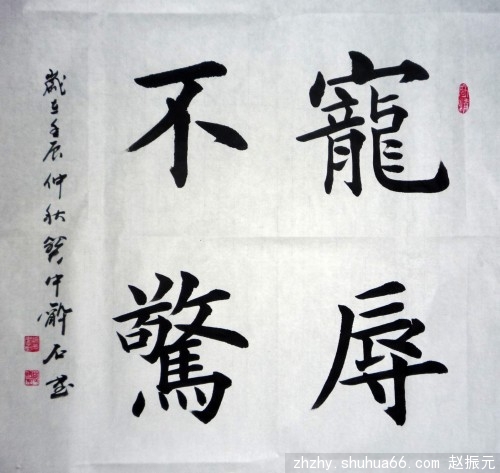 寵辱
不驚
歲在壬辰仲秋
zhzhy.shuhua66.com 赵振元